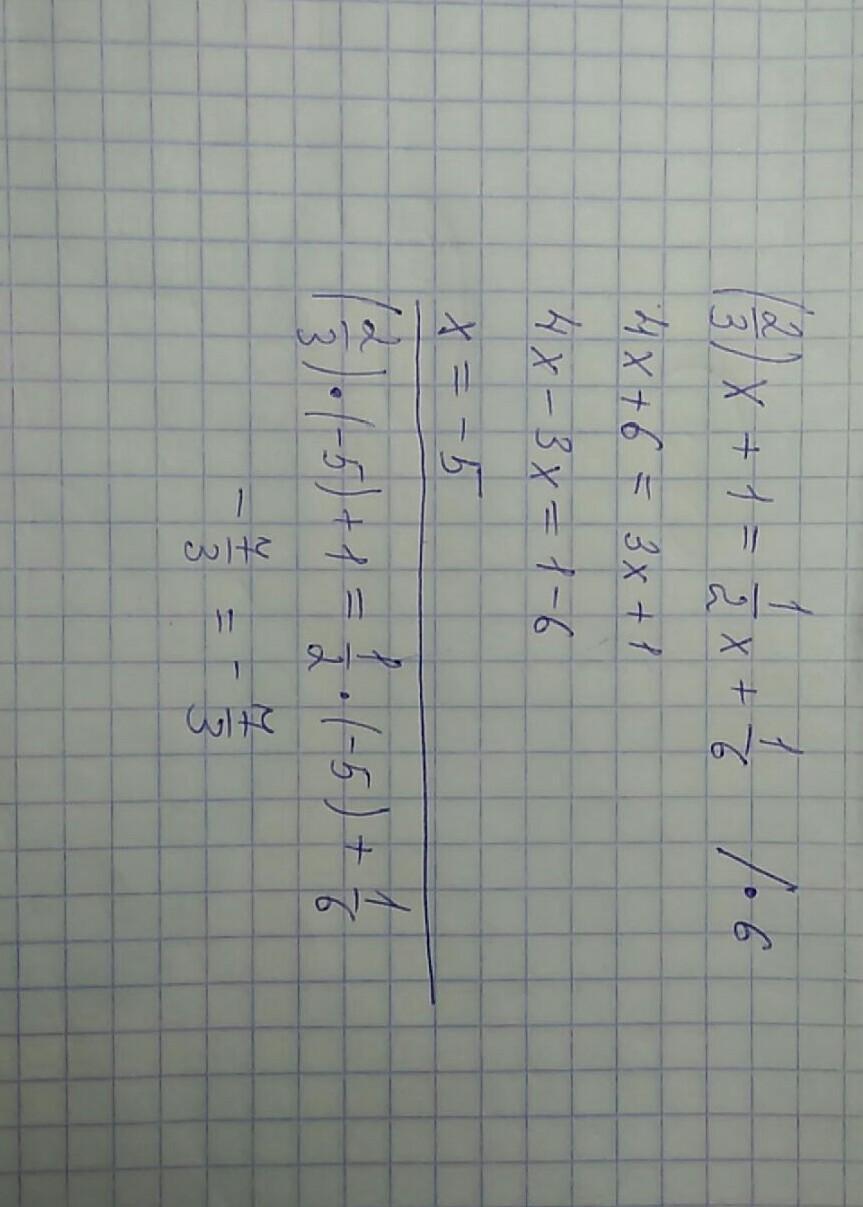 (2/3)x + 1 = 1/2 x + 1/6 /·6
4x + 6 = 3x + 1
4x - 3x = 1 - 6
x = -5
(2/3)·(-5) + 1 = 1/2·(-5) + 1/6
-7/3 = -7/3